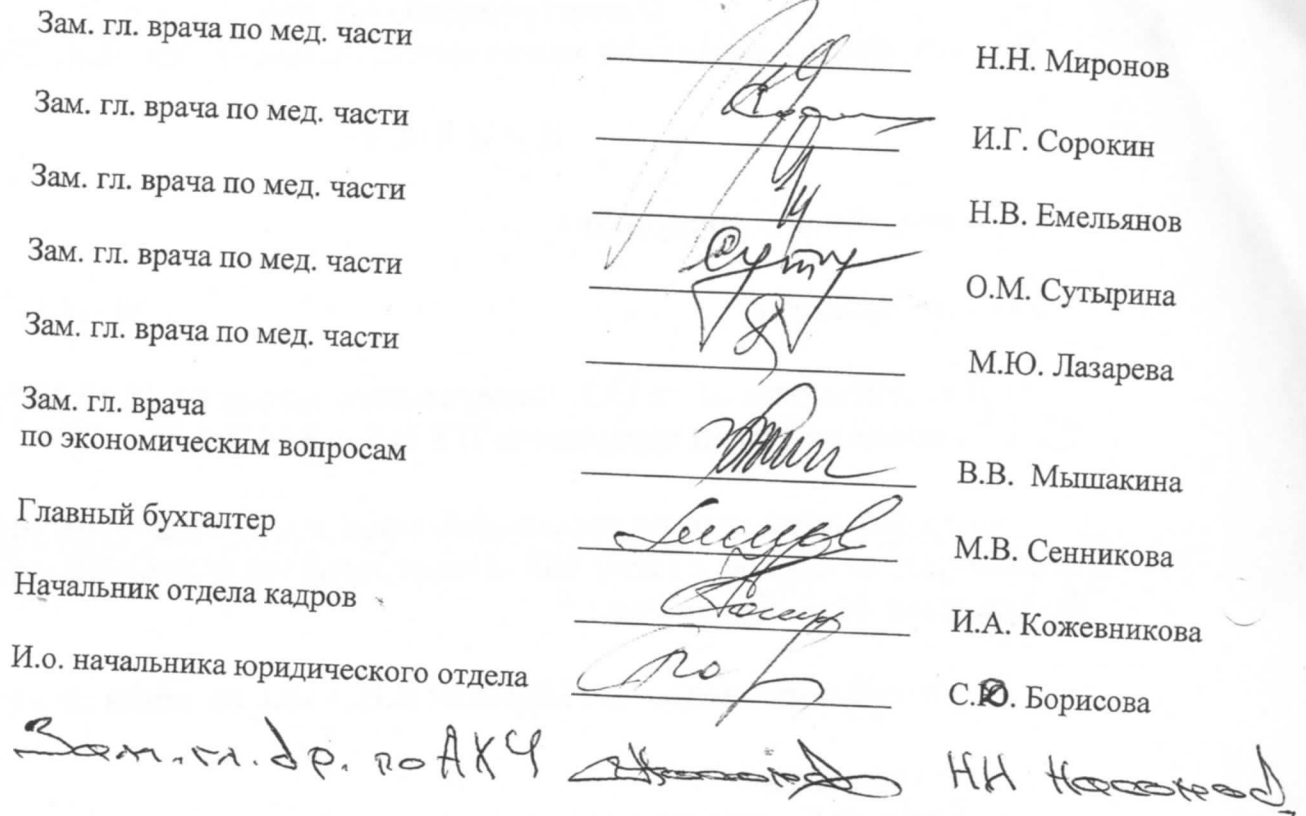 Зам. гл. врача по мед. части Н.Н. Миронов
Зам. гл. врача по мед. части И.Г. Сорокин
Зам. гл. врача по мед. части Н.В. Емельянов
Зам. гл. врача по мед. части О.М. Сутырина
Зам. гл. врача по мед. части М.Ю. Лазарева
Зам. гл. врача
по экономическим вопросам В.В. Мышакина
Главный бухгалтер М.В. Сенникова
Начальник отдела кадров И.А. Кожевникова
И.о. начальника юридического отдела Борисова
Зам. гл. вр. по АХЧ НН